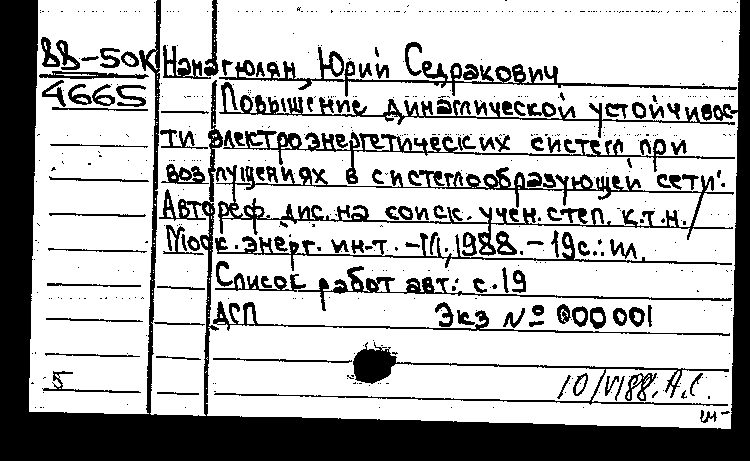 88-50К
4665
Нанагюлян, Юрий Седракович
Повышение динамической устойчивос-
ти электроэнергетических систем при
возмущениях в системообразующей сети:
Автореф. дис. на соиск. учен. степ. к.т.н./
Моск. энерг. ин-т. -М., 1988. - 19с.: ил.
Список работ авт.: с.19
ДСП Экз № 000001
5
10/VI88. А.С.